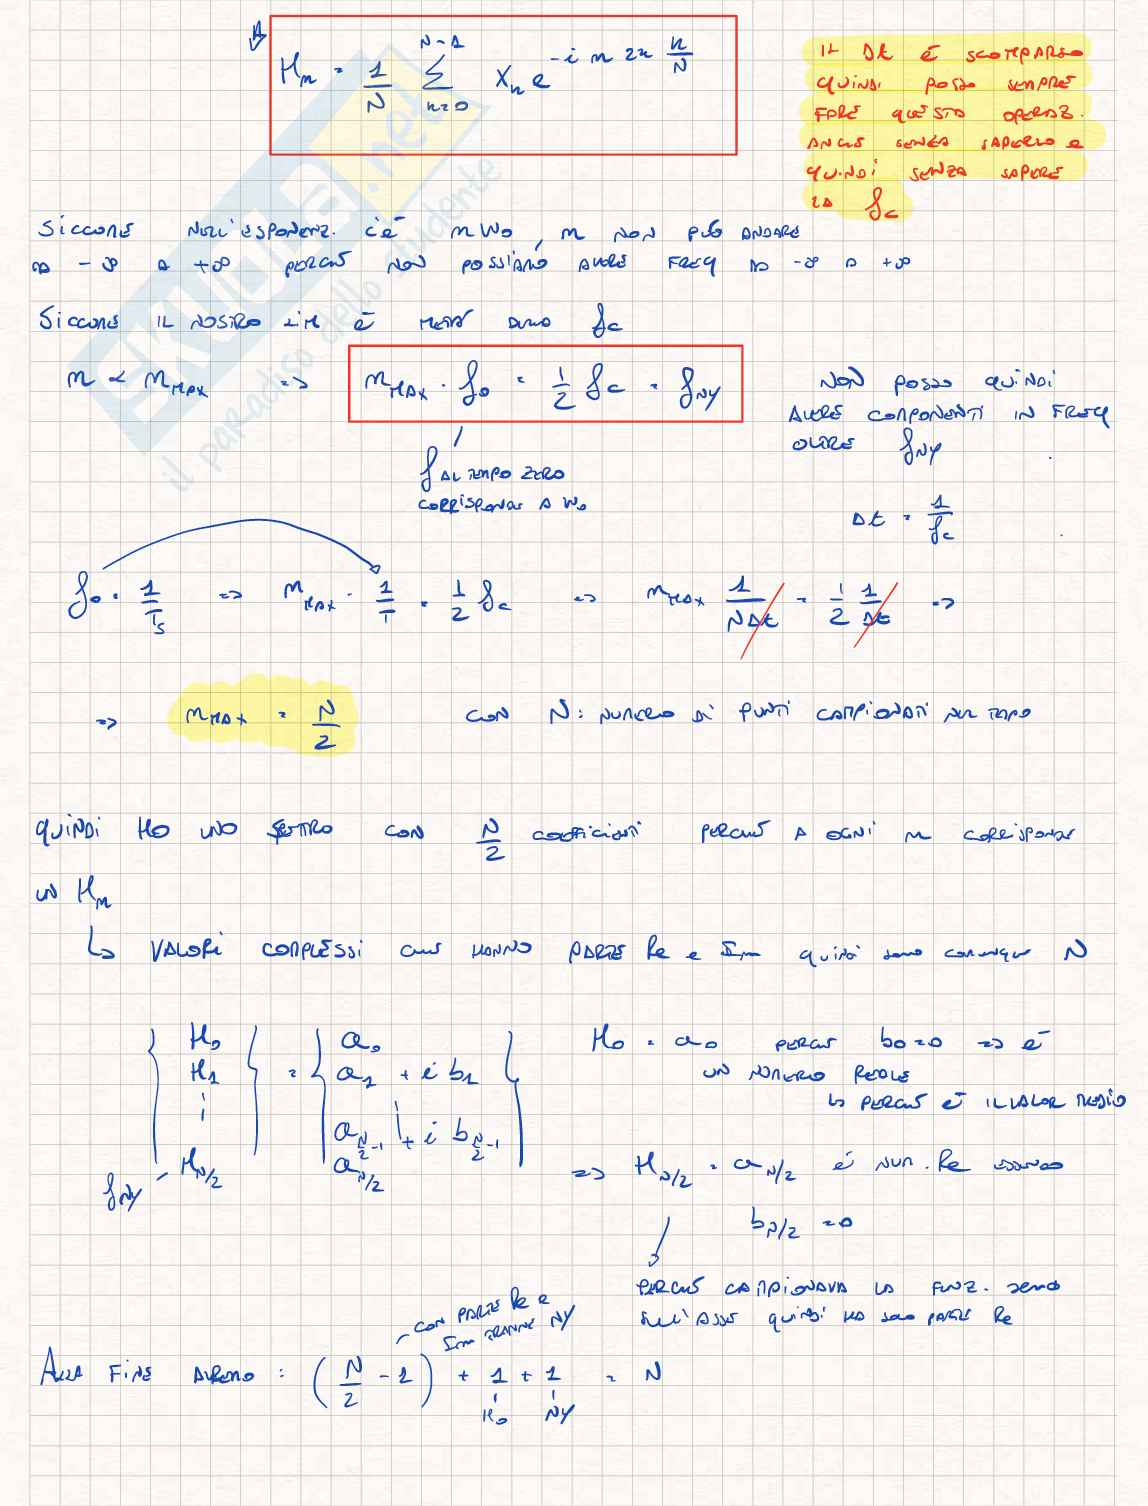 H_m = 1/N Σ_{n=0}^{N-1} x_n e^{-i m 2π n/N}
IL Δt È SCOMPARSO
QUINDI POSSO SEMPRE
FARE QUESTA OPERAZ.
ANCHE SENZA SAPERLO E
QUINDI SENZA SAPERE
LA f_c
SICCOME NELL'ESPONENZ. C'È mW₀, m NON PUÒ ANDARE
DA -∞ A +∞ PERCHÉ NON POSSIAMO AVERE FREQ DA -∞ A +∞
SICCOME IL NOSTRO LIM È METÀ DELLA f_c
m < m_MAX => m_MAX · f₀ = 1/2 f_c = f_NY
NON POSSO QUINDI
AVERE COMPONENTI IN FREQ
OLTRE f_NY
f AL TEMPO ZERO
CORRISPONDE A W₀
Δt = 1/f_c
f₀ = 1/T_s => m_MAX · 1/T = 1/2 f_c => m_MAX 1/(NΔt) = 1/2 1/Δt =>
=> m_MAX = N/2 CON N: NUMERO DI PUNTI CAMPIONATI NEL TEMPO
QUINDI HO UNO SPETTRO CON N/2 COEFFICIENTI PERCHÉ A OGNI m CORRISPONDE
UN H_m
↳ VALORI COMPLESSI CHE HANNO PARTE Re e Im quindi sono comunque N
{ H₀ } = { a₀ } H₀ = a₀ PERCHÉ b₀=0 => È
H₁ a₁ + i b₁ UN NUMERO REALE
↳ PERCHÉ È IL VALOR MEDIO
a_{N/2-1} + i b_{N/2-1}
f_NY - H_{N/2} a_{N/2} => H_{N/2} = a_{N/2} è NUM. Re ESSENDO
b_{N/2} = 0
PERCHÉ CAMPIONAVA LA FUNZ. SENO
SULL'ASSE QUINDI HA SOLO PARTE Re
- CON PARTE Re E
Im TRANNE NY
ALLA FINE AVREMO : (N/2 - 1) + 1 + 1 = N
H₀ NY
il paradiso dello studente